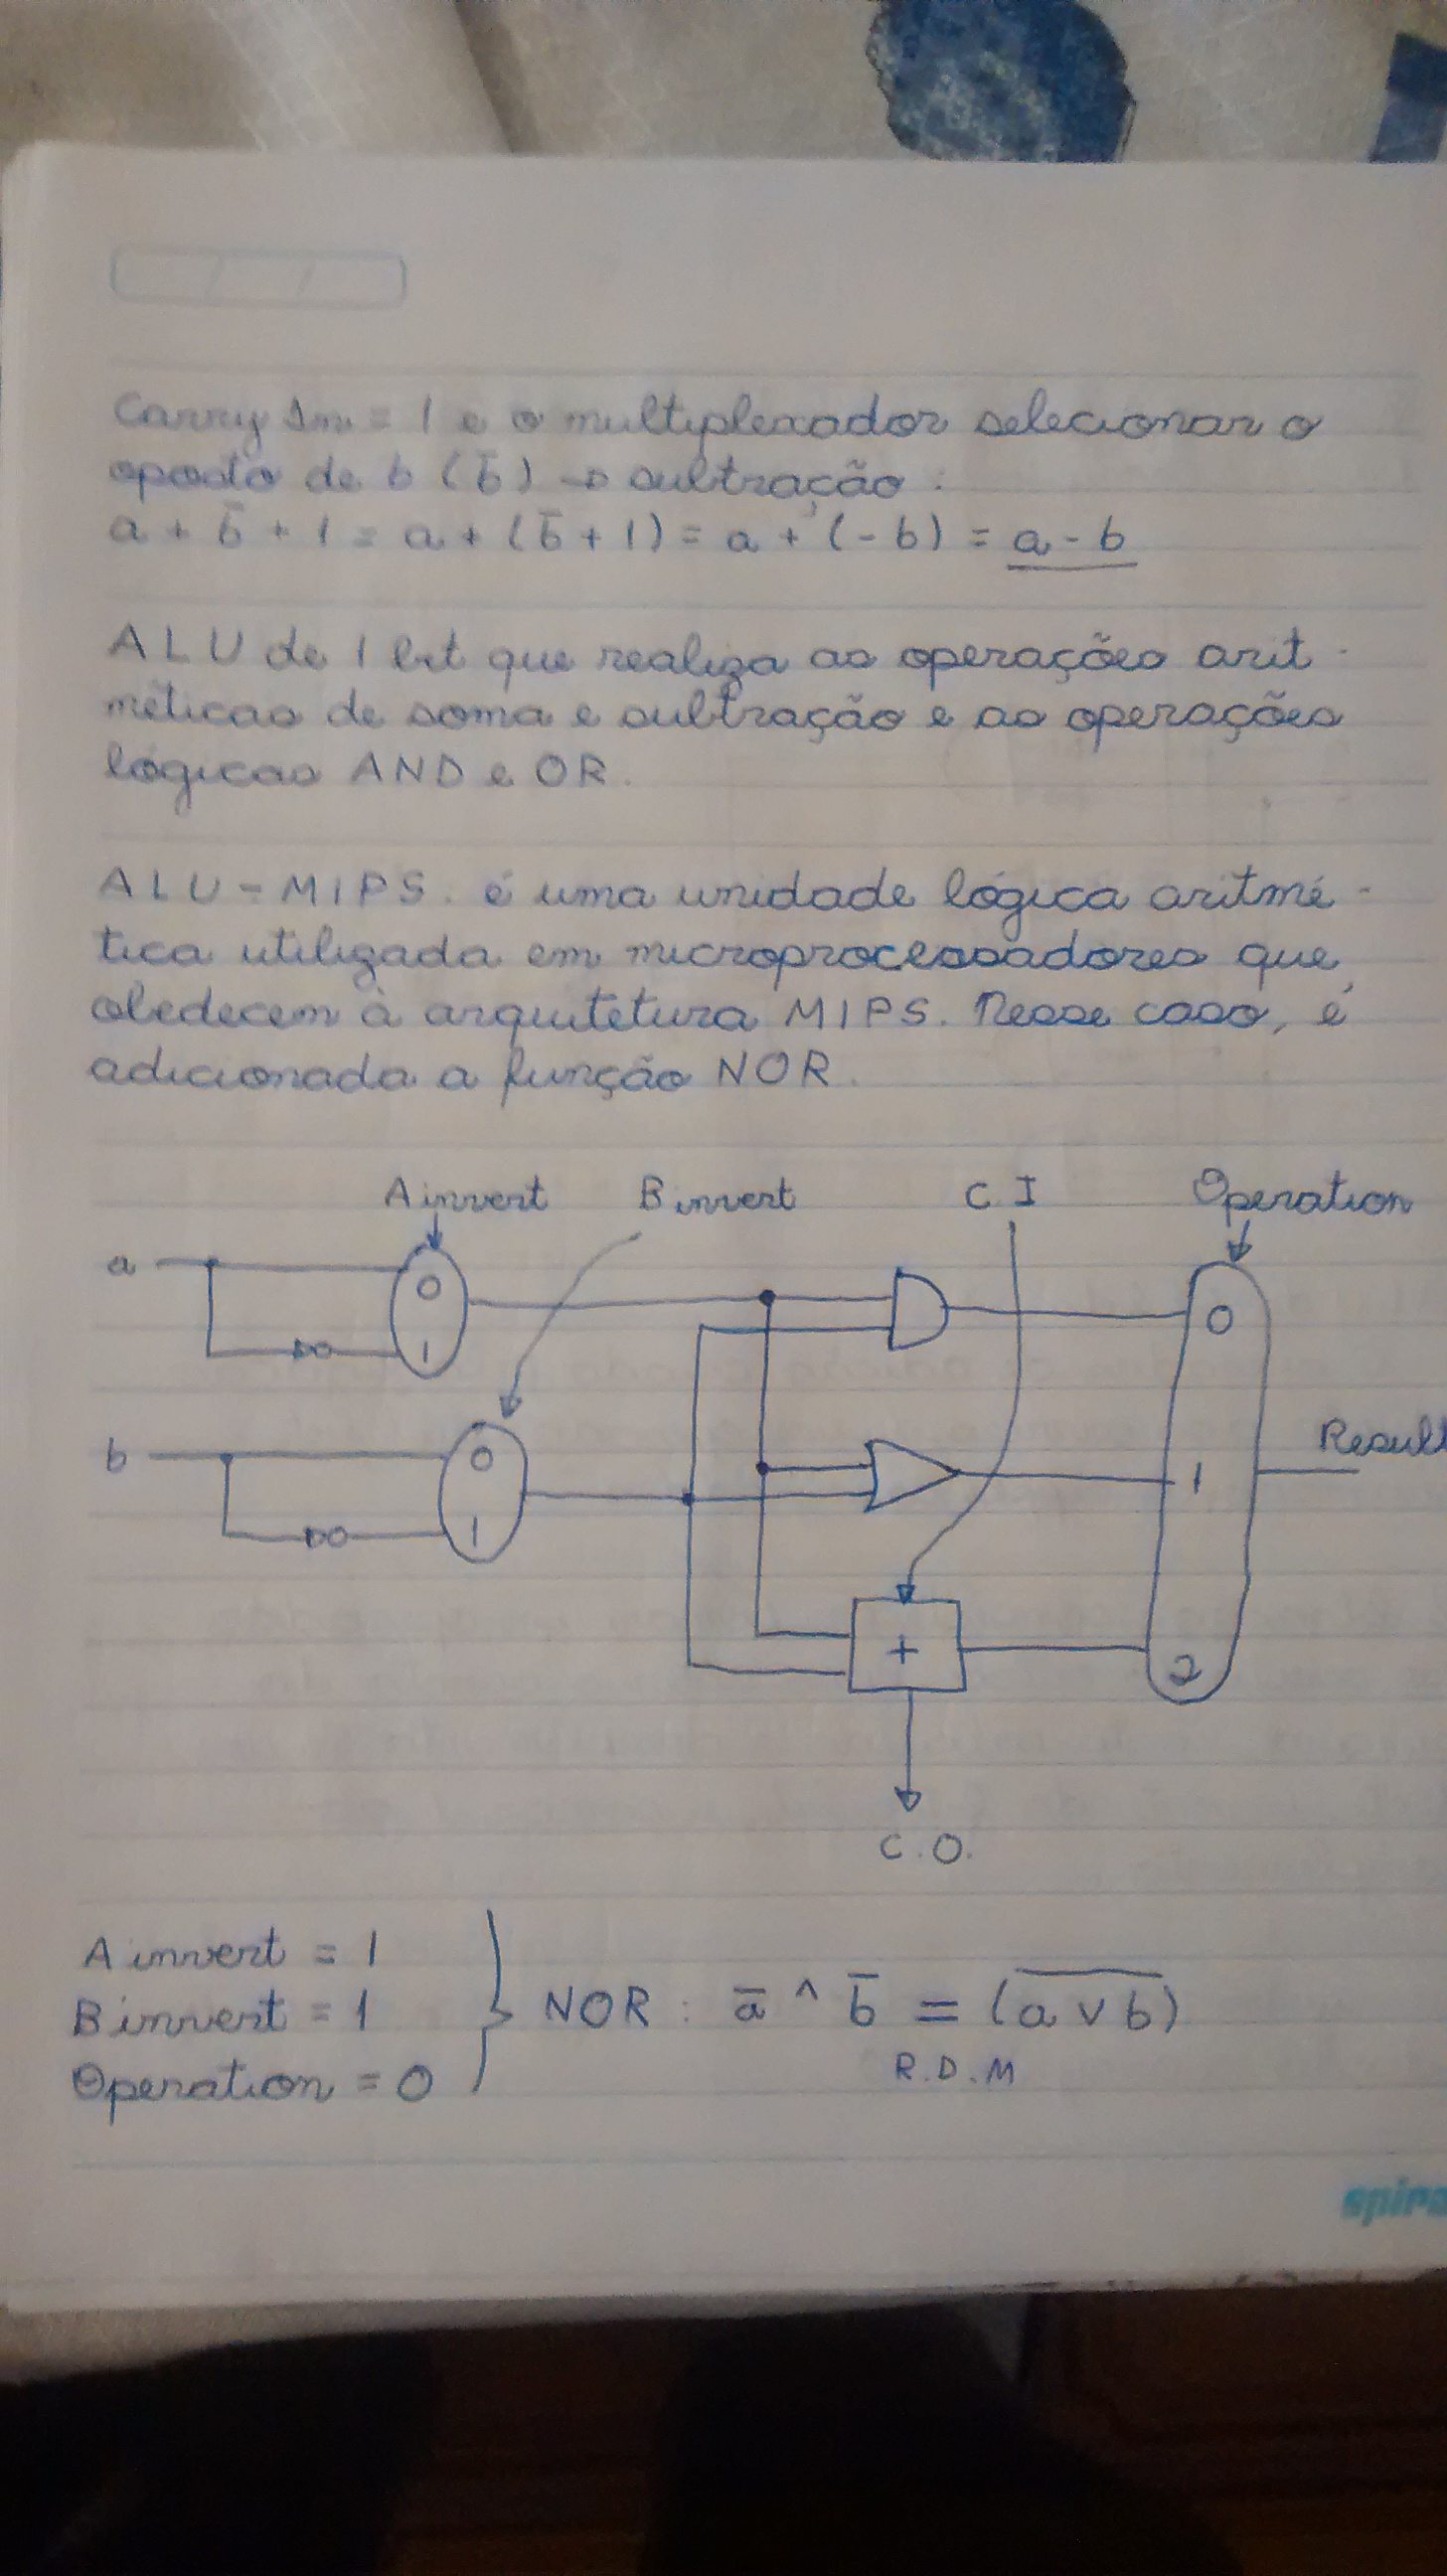 Carry In = 1 e o multiplexador selecionar o
oposto de b (b̅) → subtração:
a + b̅ + 1 = a + (b̅ + 1) = a + (-b) = a - b
ALU de 1 bit que realiza as operações arit-
méticas de soma e subtração e as operações
lógicas AND e OR.
ALU - MIPS. é uma unidade lógica aritmé-
tica utilizada em microprocessadores que
obedecem à arquitetura MIPS. Nesse caso, é
adicionada a função NOR.
Ainvert Binvert C I Operation
a 0 1 0
b 0 1 1 Result
+ 2
C.O.
Ainvert = 1
Binvert = 1 NOR: a̅ ^ b̅ = (a̅ ̅v̅ ̅b̅)
R.D.M
Operation = 0